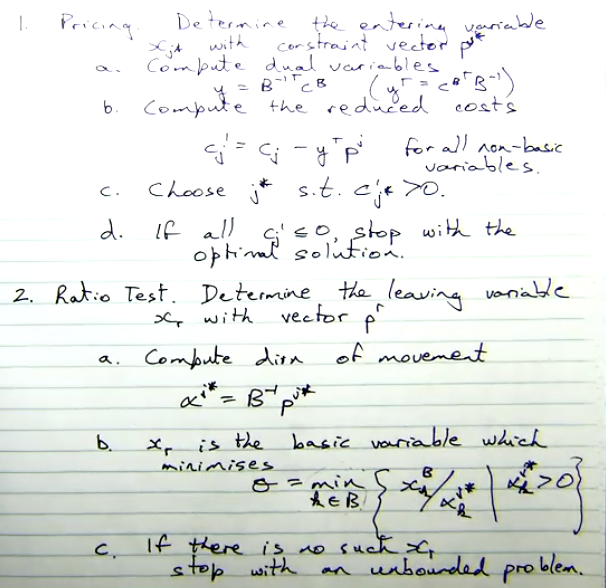 1. Pricing. Determine the entering variable
xⱼ* with constraint vector pʲ*
a. Compute dual variables
y = B⁻¹ᵀcᴮ (yᵀ = cᴮᵀB⁻¹)
b. Compute the reduced costs
cⱼ' = cⱼ - yᵀpʲ for all non-basic
variables.
c. Choose j* s.t. c'ⱼ* >0.
d. If all cⱼ' ≤ 0, stop with the
optimal solution.
2. Ratio Test. Determine the leaving variable
xᵣ with vector pʳ
a. Compute dirn of movement
αʲ* = B⁻¹pʲ*
b. xᵣ is the basic variable which
minimises
θ = min {xₖᴮ/αₖʲ* | αₖʲ* >0}
k∈B
c. If there is no such xᵣ
stop with an unbounded problem.